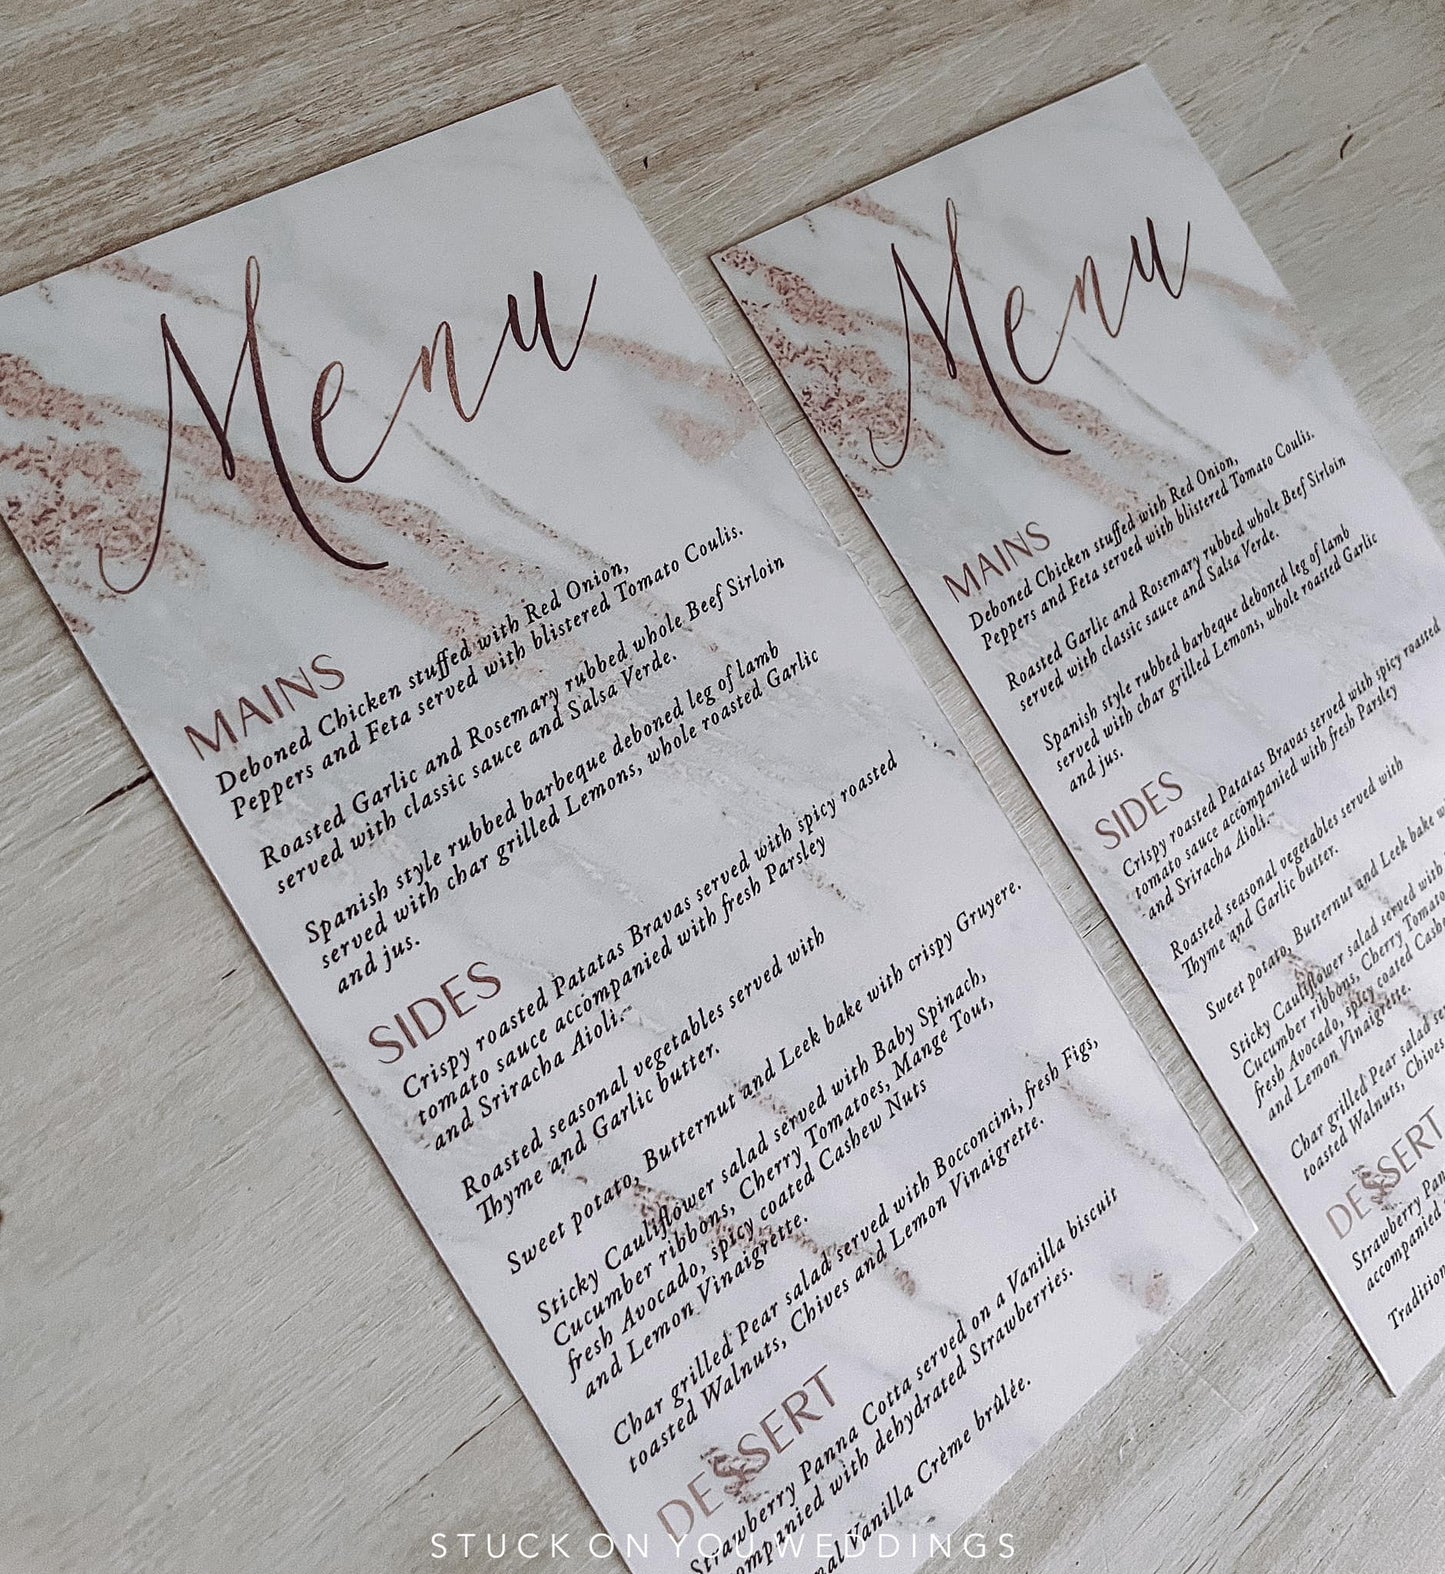 Menu
MAINS
Deboned Chicken stuffed with Red Onion,
Peppers and Feta served with blistered Tomato Coulis.
Roasted Garlic and Rosemary rubbed whole Beef Sirloin
served with classic sauce and Salsa Verde.
Spanish style rubbed barbeque deboned leg of lamb
served with char grilled Lemons, whole roasted Garlic
and jus.
SIDES
Crispy roasted Patatas Bravas served with spicy roasted
tomato sauce accompanied with fresh Parsley
and Sriracha Aioli.
Roasted seasonal vegetables served with
Thyme and Garlic butter.
Sweet potato, Butternut and Leek bake with crispy Gruyere.
Sticky Cauliflower salad served with Baby Spinach,
Cucumber ribbons, Cherry Tomatoes, Mange Tout,
fresh Avocado, spicy coated Cashew Nuts
and Lemon Vinaigrette.
Char grilled Pear salad served with Bocconcini, fresh Figs,
toasted Walnuts, Chives and Lemon Vinaigrette.
DESSERT
Strawberry Panna Cotta served on a Vanilla biscuit
companied with dehydrated Strawberries.
nal Vanilla Crème brûlée.
Menu
MAINS
Deboned Chicken stuffed with Red Onion,
Peppers and Feta served with blistered Tomato Coulis.
Roasted Garlic and Rosemary rubbed whole Beef Sirloin
served with classic sauce and Salsa Verde.
Spanish style rubbed barbeque deboned leg of lamb
served with char grilled Lemons, whole roasted Garlic
and jus.
SIDES
Crispy roasted Patatas Bravas served with spicy roasted
tomato sauce accompanied with fresh Parsley
and Sriracha Aioli.
Roasted seasonal vegetables served with
Thyme and Garlic butter.
Sweet potato, Butternut and Leek bake w
Sticky Cauliflower salad served with
Cucumber ribbons, Cherry Tomato
fresh Avocado, spicy coated Cash
and Lemon Vinaigrette.
Char grilled Pear salad se
toasted Walnuts, Chives
DESSERT
Strawberry Pan
accompanied
Tradition
STUCK ON YOU WEDDINGS